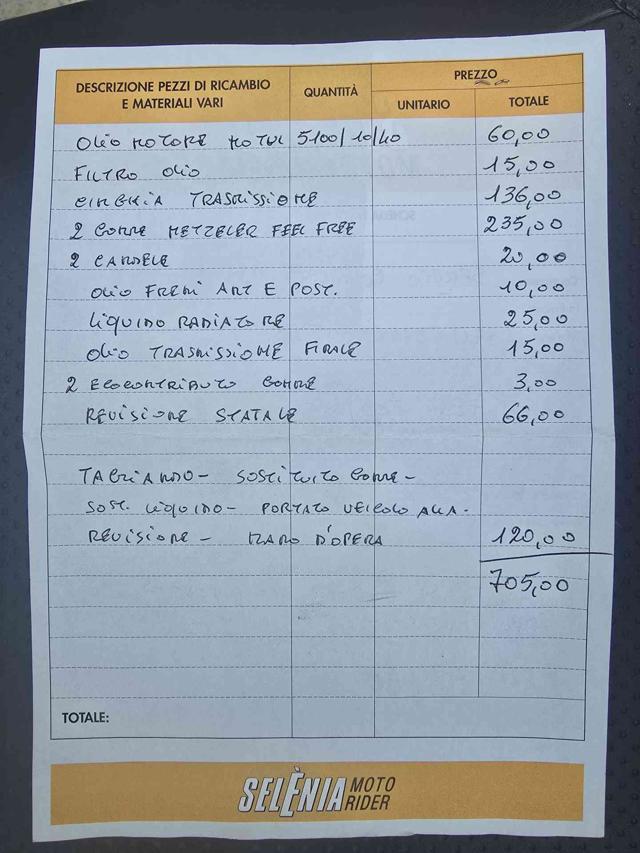 DESCRIZIONE PEZZI DI RICAMBIO E MATERIALI VARI QUANTITÀ PREZZO
UNITARIO TOTALE
OLIO MOTORE MOTUL 5100/10/40 60,00
FILTRO OLIO 15,00
CINGHIA TRASMISSIONE 136,00
2 GOMME METZELER FEEL FREE 235,00
2 CANDELE 20,00
OLIO FRENI ANT E POST. 10,00
LIQUIDO RADIATORE 25,00
OLIO TRASMISSIONE FINALE 15,00
2 ECOCONTRIBUTO GOMME 3,00
REVISIONE STATALE 66,00
TAGLIANDO - SOSTITUITO GOMME -
SOST. LIQUIDO - PORTATO VEICOLO ALLA -
REVISIONE - MANO D'OPERA 120,00
705,00
TOTALE:
SELÈNIA MOTO RIDER